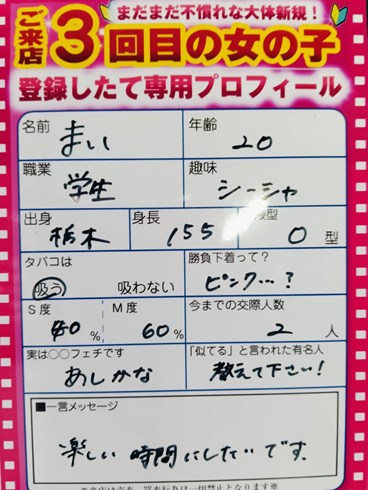 まだまだ不慣れな大体新規！
ご来店3回目の女の子
登録したて専用プロフィール
名前 まい
年齢 20
職業 学生
趣味 シーシャ
出身 栃木
身長 155
型 O 型
タバコは 吸う 吸わない
勝負下着って？ ピンク…？
S度 40 %
M度 60 %
今までの交際人数 2 人
実は○○フェチです あしかな
「似てる」と言われた有名人 教えて下さい！
■一言メッセージ
楽しい時間にしたいです.